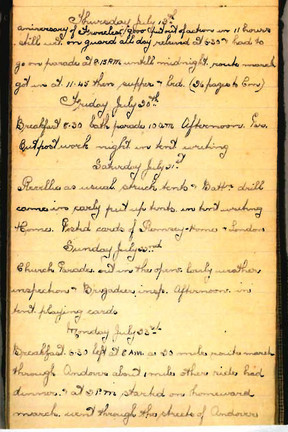 Thursday July 19th
aniversary of Fromelles, 5500 put out of action in 11 hours
still wet, on guard all day relieved at 5.30 & had to
go on parade at 9.15PM untill midnight, route march
got in at 11.45 then supper & bed. (36 pages to Em)
Friday July 20th
Breakfast 8-30 bath parade 10 am Afternoon.
Outpost work night in tent writing
Saturday July 21st
Revellie as usual struck tents & Battn drill
came in early put up tents, in tent writing
Home. Postd cards of Romsey - Home & London
Sunday July 22nd
Church Parade out in the open, lovely weather
inspection & Brigadier insp. Afternoon, in
tent playing cards
Monday July 23rd
Breakfast 5.30 left at 8 AM on 20 miles route march
through Andover about 1 miles other side had
dinner, & at 2 PM started on homeward
march, went through the streets of Andover